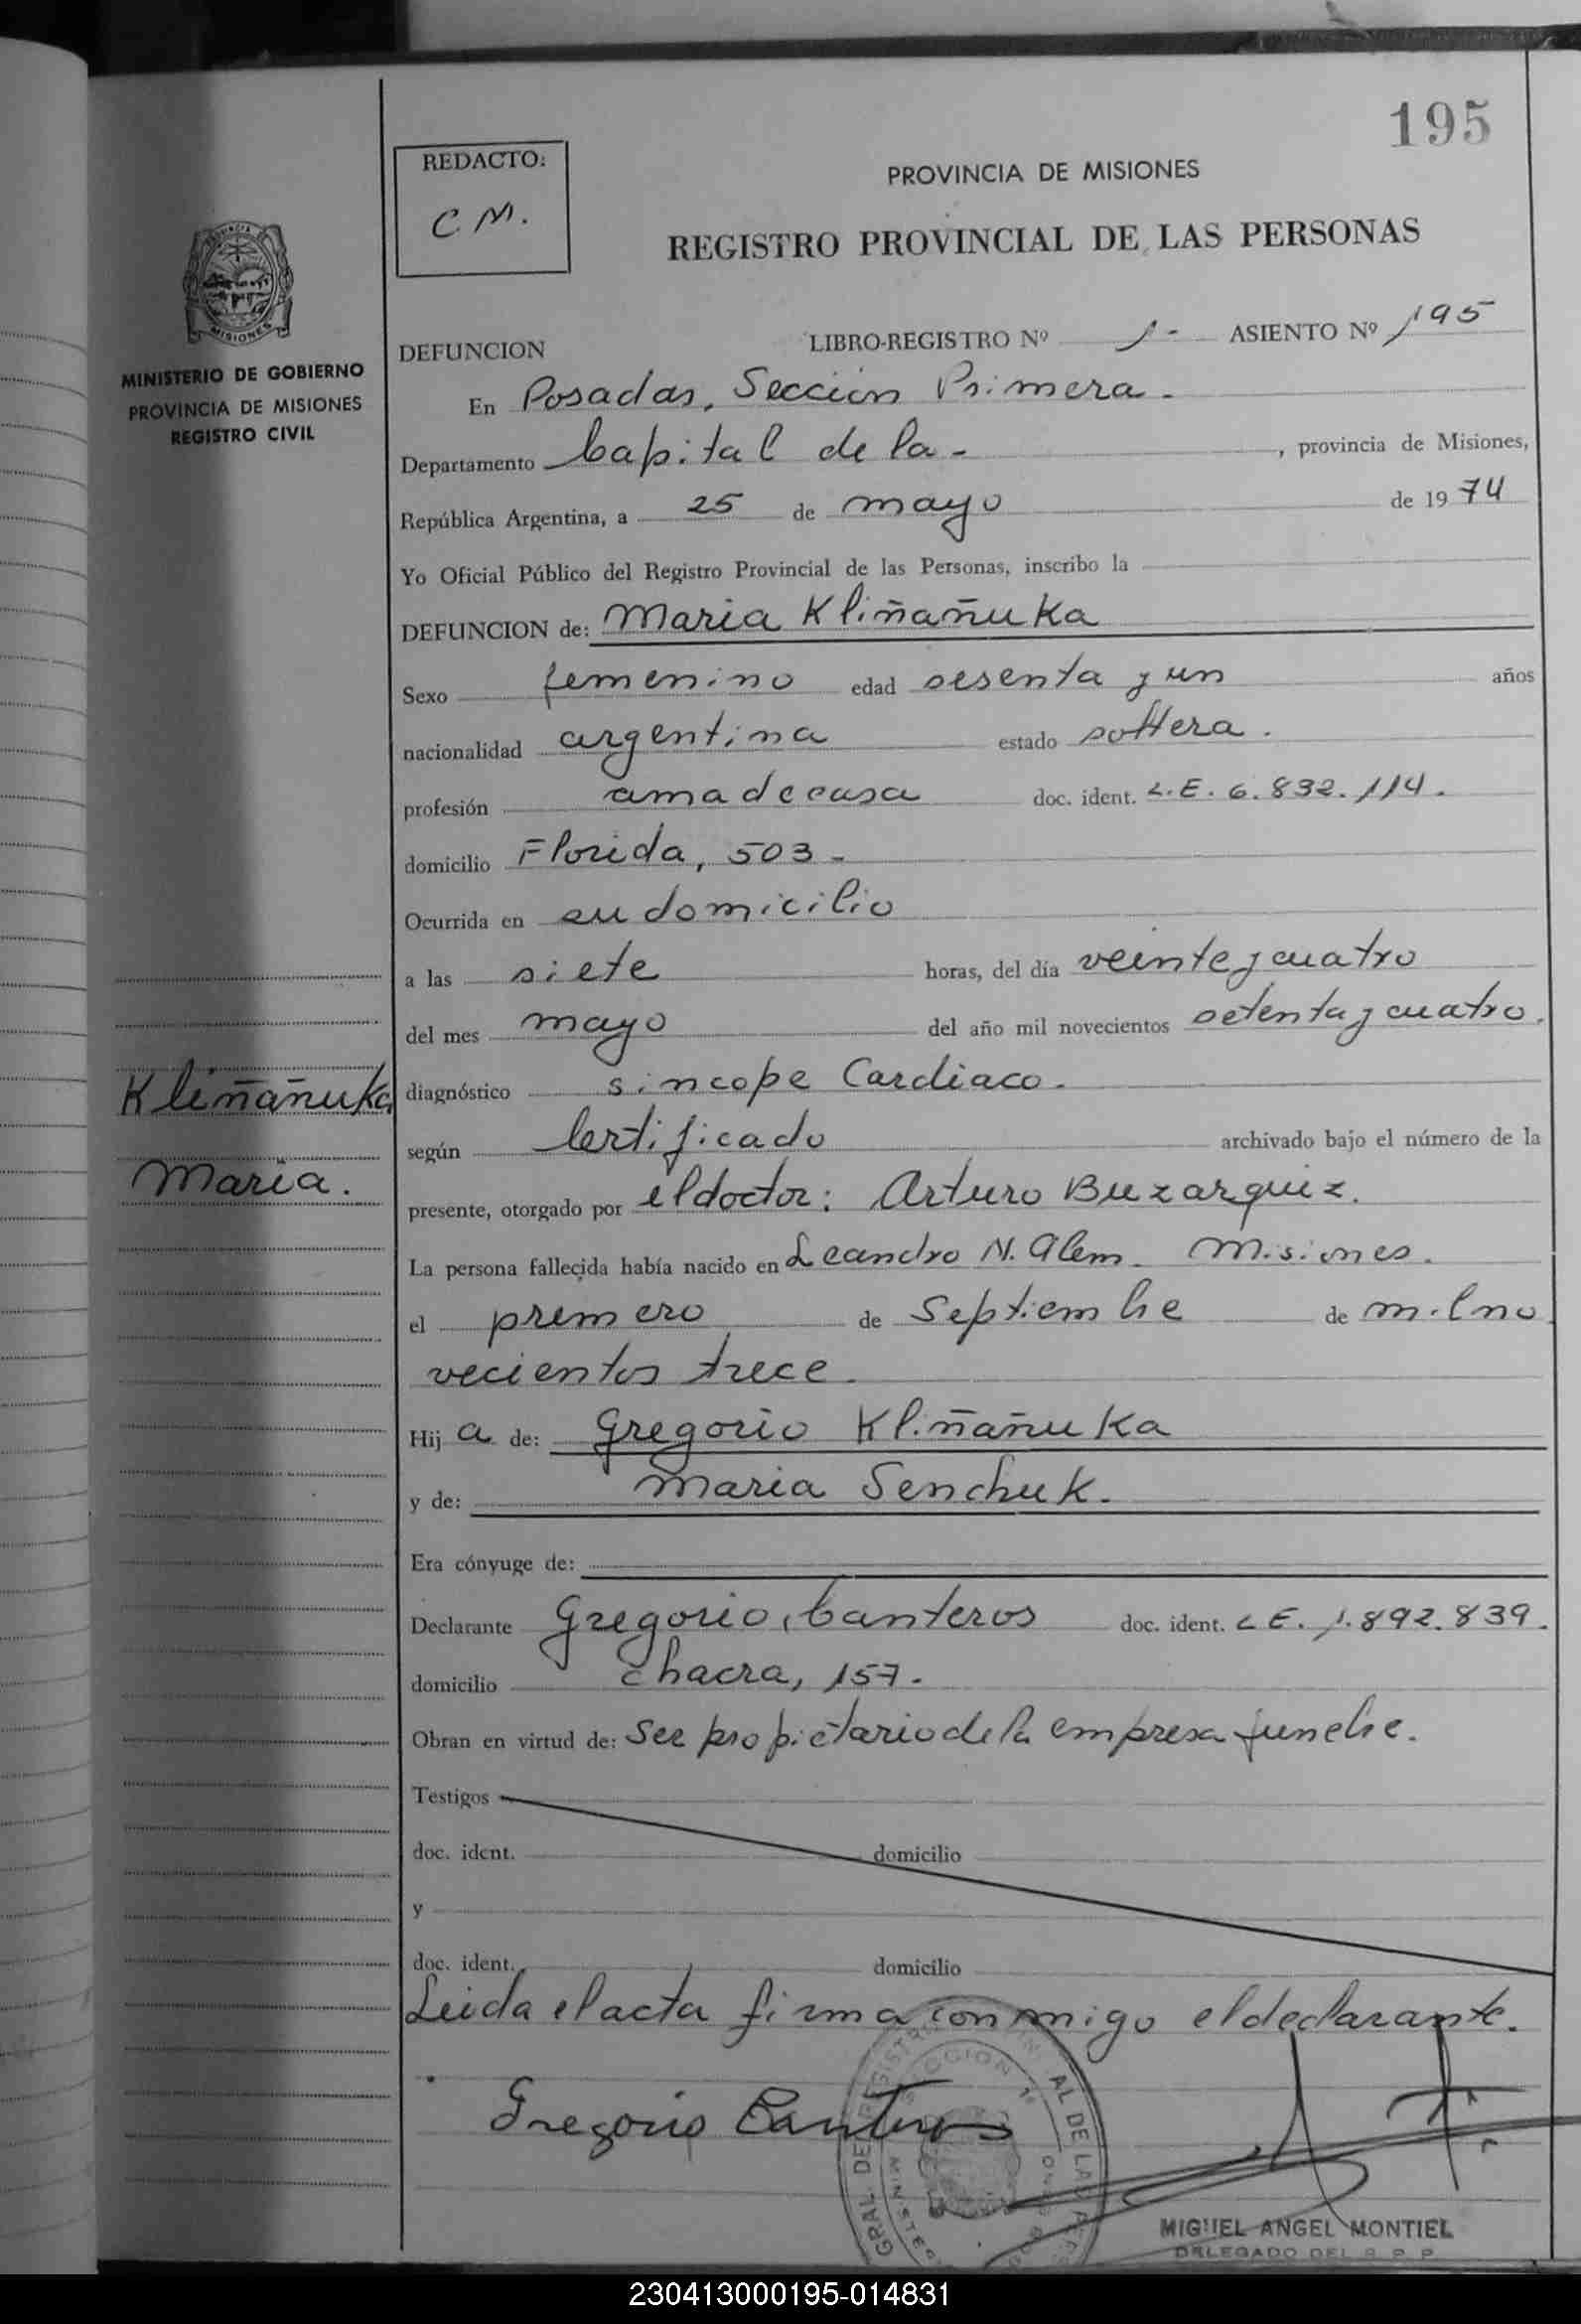 195
REDACTO:
C. M.
PROVINCIA DE MISIONES
REGISTRO PROVINCIAL DE LAS PERSONAS
MISIONES
MINISTERIO DE GOBIERNO
PROVINCIA DE MISIONES
REGISTRO CIVIL
DEFUNCION LIBRO-REGISTRO Nº 1- ASIENTO Nº 195
En Posadas, Sección Primera.
Departamento Capital de la - , provincia de Misiones,
República Argentina, a 25 de mayo de 1974
Yo Oficial Público del Registro Provincial de las Personas, inscribo la
DEFUNCION de: Maria Kliñañuka
Sexo femenino edad sesenta y un años
nacionalidad argentina estado soltera.
profesión ama de casa doc. ident. L.E. 6.832.114.
domicilio Florida, 503-
Ocurrida en su domicilio
a las siete horas, del día veinte y cuatro
del mes mayo del año mil novecientos setenta y cuatro.
diagnóstico sincope Cardiaco.
según Certificado archivado bajo el número de la
presente, otorgado por el doctor: Arturo Buzarquiz.
La persona fallecida había nacido en Leandro N. Alem. Misiones.
el premero de Septiembre de mil no
vecientos trece.
Hija de: Gregorio Kliñañuka
y de: Maria Senchuk.
Era cónyuge de:
Declarante Gregorio, Canteros doc. ident. L E. 1.892.839.
domicilio chacra, 157.
Obran en virtud de: Ser propietario de la empresa funebre.
Testigos
doc. ident. domicilio
y
doc. ident. domicilio
Leida el acta firma conmigo el declarante.
Kliñañuka
Maria.
Gregorio Canteros
MIGUEL ANGEL MONTIEL
DELEGADO DEL R. P. P.
230413000195-014831